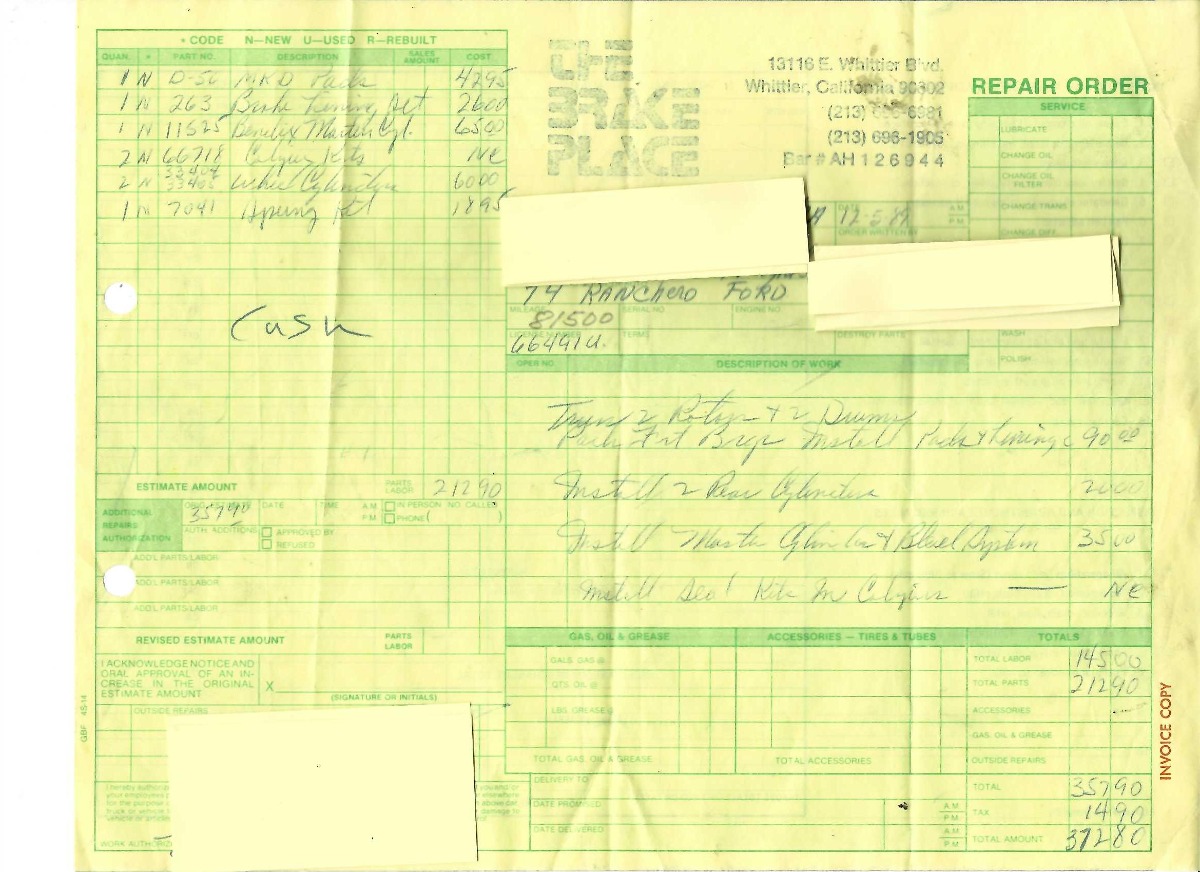 • CODE N—NEW U—USED R—REBUILT
QUAN. * PART NO. DESCRIPTION SALES AMOUNT COST
1 N D-50 MKD Pads 4295
1 N 263 Brake Lining Set 2600
1 N 11525 Bendix Master Cyl. 6500
2 N 66718 Kits NC
2 N 33467 33468 Cylinders 6000
1 N 7041 Spring Kit 1895
Cash
ESTIMATE AMOUNT PARTS LABOR 21290
ADDITIONAL REPAIRS AUTHORIZATION
35790 DATE TIME A.M. P.M. IN PERSON NO. CALLED PHONE ( )
AUTH. ADDITIONS APPROVED BY
REFUSED
ADD'L PARTS/LABOR
ADD'L PARTS/LABOR
ADD'L PARTS/LABOR
REVISED ESTIMATE AMOUNT PARTS LABOR
I ACKNOWLEDGE NOTICE AND
ORAL APPROVAL OF AN IN-
CREASE IN THE ORIGINAL
ESTIMATE AMOUNT X (SIGNATURE OR INITIALS)
OUTSIDE REPAIRS
GBF 4S-14
I hereby authorize
your employees
for the purpose
truck or vehicle
vehicle or articles
WORK AUTHORIZ
THE
BRAKE
PLACE
13116 E. Whittier Blvd.
Whittier, California 90602
(213) 696-6981
(213) 696-1905
Bar # AH 126944
REPAIR ORDER
SERVICE
LUBRICATE
CHANGE OIL
CHANGE OIL FILTER
CHANGE TRANS.
CHANGE DIFF.
WASH
POLISH
DATE 12-5-89 A.M. P.M.
ORDER WRITTEN BY
74 RANCHERO FORD
MILEAGE SERIAL NO. ENGINE NO.
81500
LICENSE NUMBER TERMS DESTROY PARTS
66491U
OPER NO. DESCRIPTION OF WORK
Turn 2 Rotors + 2 Drums
Pack Frt Brgs Install Pads & Linings 90 00
Install 2 Rear Cylinders 2000
Install Master Cylinder & Bleed System 3500
Install Seal Kits In — NC
GAS, OIL & GREASE ACCESSORIES — TIRES & TUBES TOTALS
GALS. GAS @
QTS. OIL @
LBS. GREASE @
TOTAL GAS, OIL & GREASE TOTAL ACCESSORIES
TOTAL LABOR 14500
TOTAL PARTS 21290
ACCESSORIES
GAS, OIL & GREASE
OUTSIDE REPAIRS
TOTAL 35790
TAX 1490
TOTAL AMOUNT 37280
DELIVERY TO
DATE PROMISED A.M. P.M.
DATE DELIVERED A.M. P.M.
INVOICE COPY